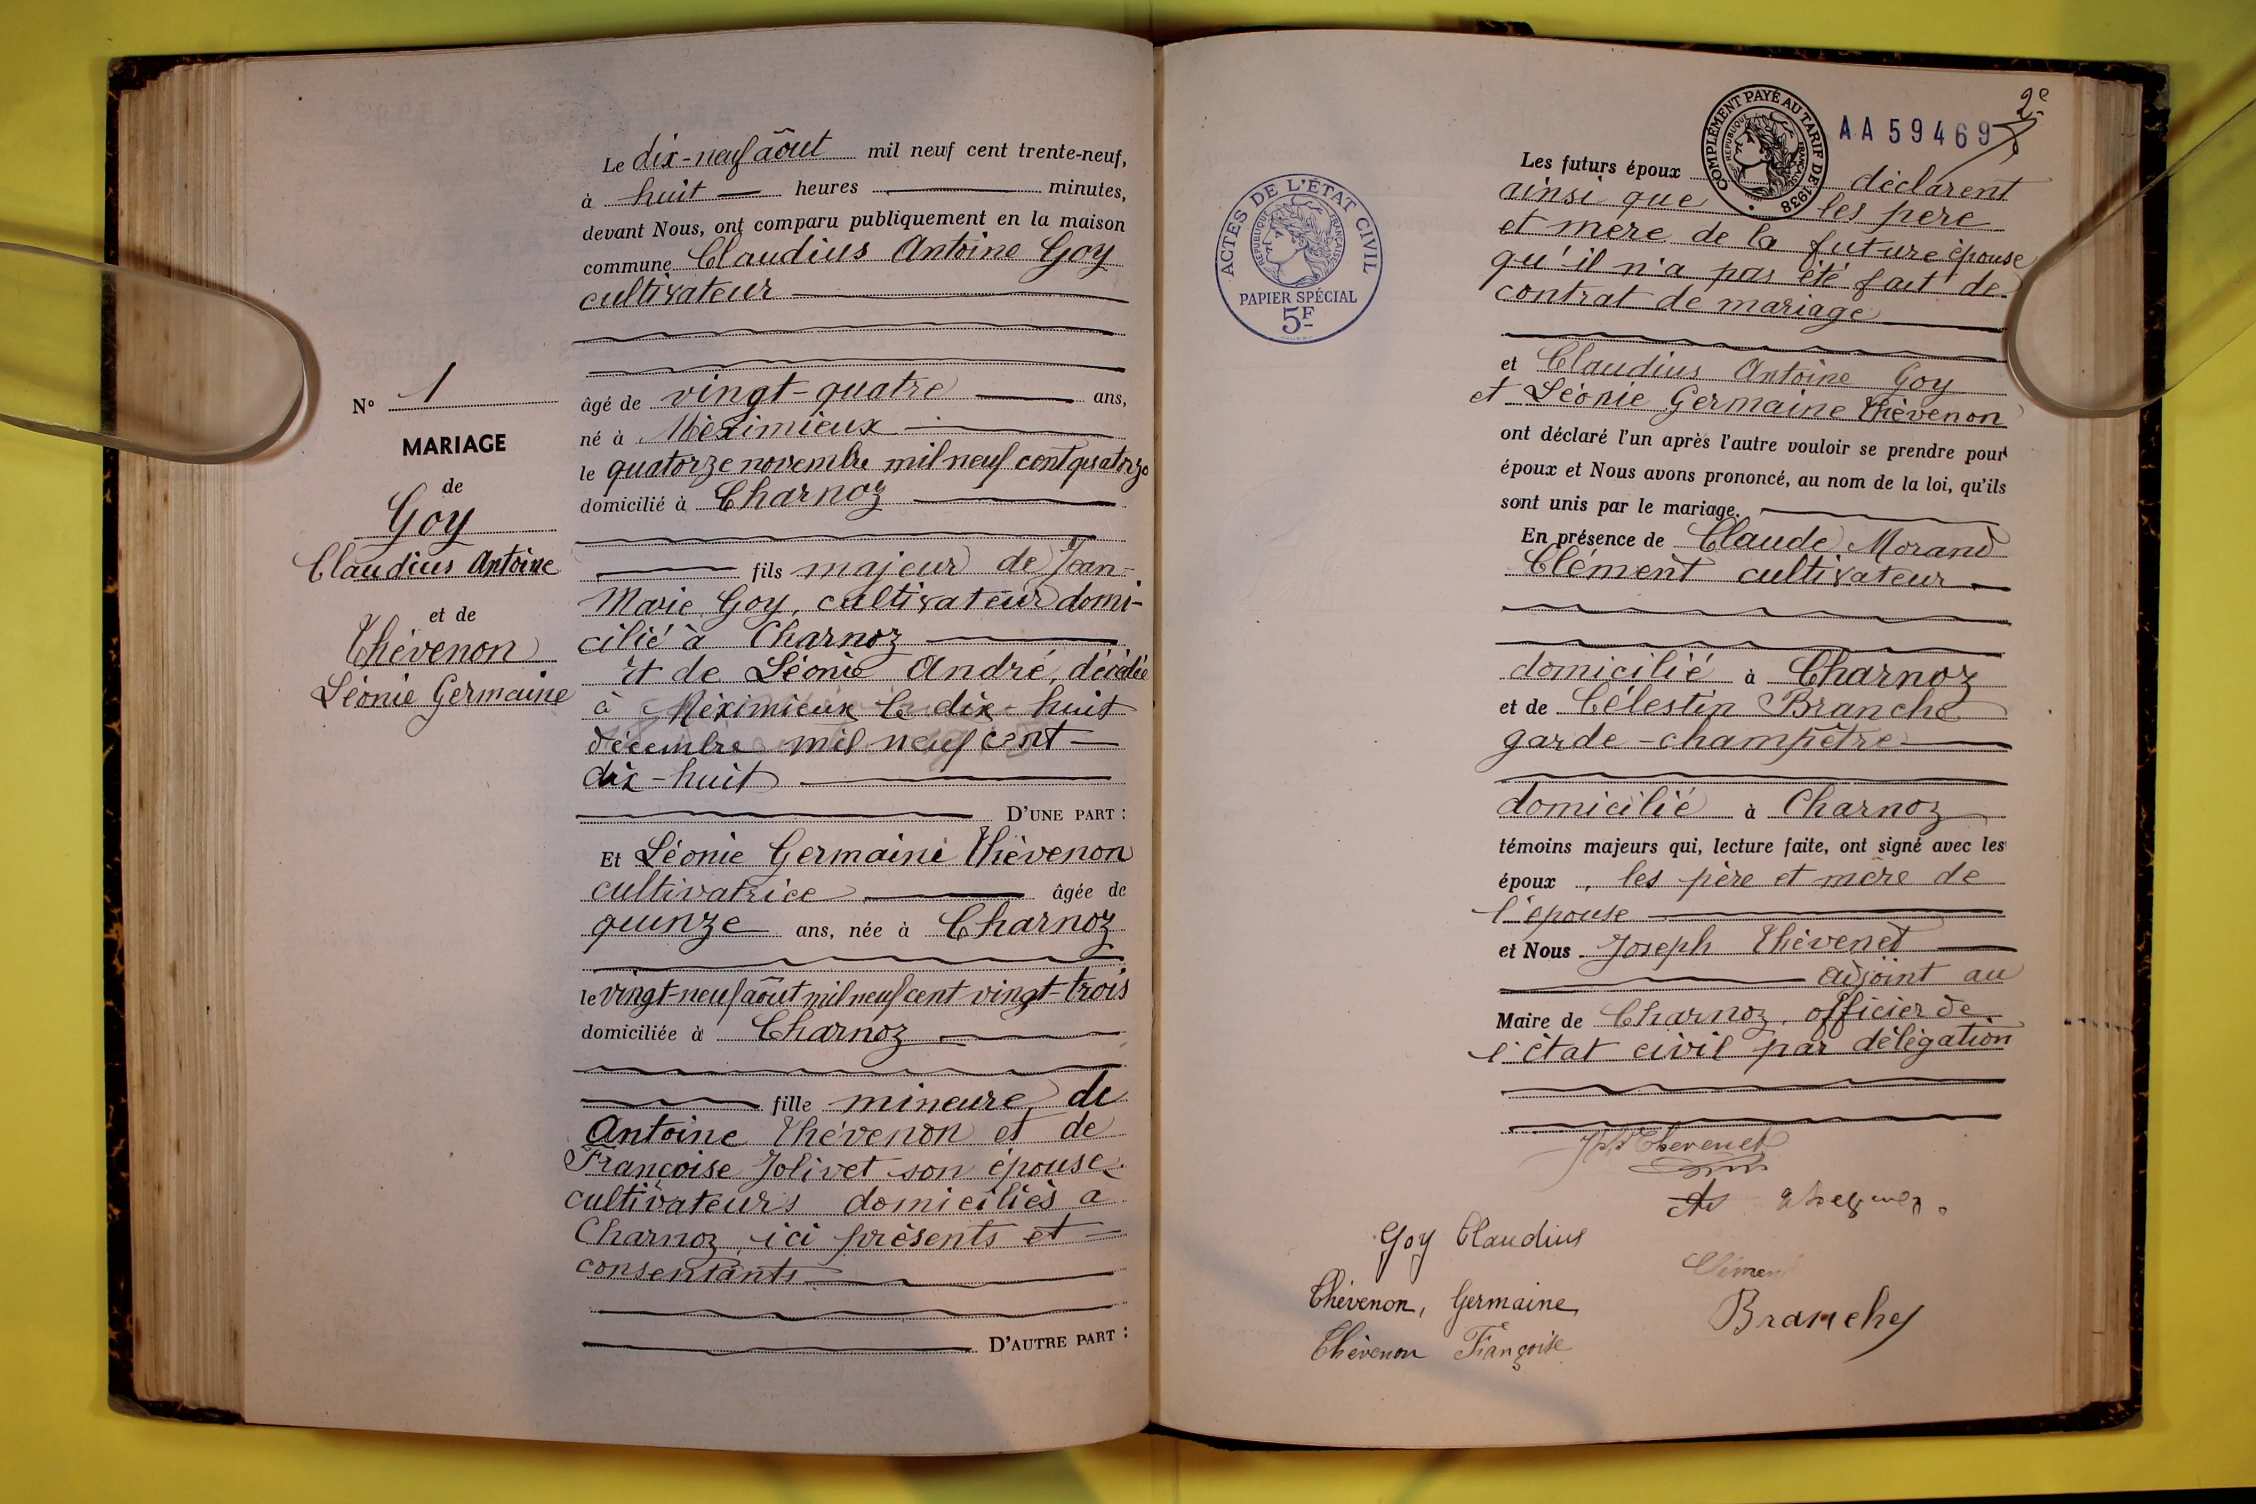 N° 1
MARIAGE
de
Goy
Claudius Antoine
et de
Thévenon
Léonie Germaine
Le dix-neuf août mil neuf cent trente-neuf,
à huit heures minutes,
devant Nous, ont comparu publiquement en la maison
commune Claudius Antoine Goy
cultivateur
âgé de vingt-quatre ans,
né à Méximieux
le quatorze novembre mil neuf cent quatorze
domicilié à Charnoz
fils majeur de Jean-
Marie Goy, cultivateur domi-
cilié à Charnoz
et de Léonie André, décédée
à Méximieux le dix-huit
décembre mil neuf cent
dix-huit
D'UNE PART :
Et Léonie Germaine Thévenon
cultivatrice âgée de
quinze ans, née à Charnoz
le vingt-neuf août mil neuf cent vingt-trois
domiciliée à Charnoz
fille mineure de
Antoine Thévenon et de
Françoise Jolivet son épouse
cultivateurs domiciliés à
Charnoz ici présents et
consentants
D'AUTRE PART :
ACTES DE L'ÉTAT CIVIL
RÉPUBLIQUE FRANÇAISE
PAPIER SPÉCIAL
5F
COMPLÉMENT PAYÉ AU TARIF DE 1938
RÉPUBLIQUE FRANÇAISE
AA59469
2e
Les futurs époux déclarent
ainsi que les père
et mère de la future épouse
qu'il n'a pas été fait de
contrat de mariage
et Claudius Antoine Goy
et Léonie Germaine Thévenon
ont déclaré l'un après l'autre vouloir se prendre pour
époux et Nous avons prononcé, au nom de la loi, qu'ils
sont unis par le mariage.
En présence de Claude Morand
Clément cultivateur
domicilié à Charnoz
et de Célestin Branche
garde-champêtre
domicilié à Charnoz
témoins majeurs qui, lecture faite, ont signé avec les
époux, les père et mère de
l'épouse
et Nous Joseph Thévenet
adjoint au
Maire de Charnoz, officier de
l'état civil par délégation
Thevenet
Goy Claudius
Clément
Thévenon, Germaine
Branche
Thévenon Françoise